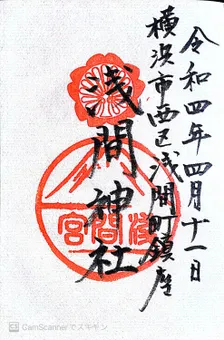 令和四年四月十一日
横浜市西区浅間町鎮座
浅間神社
浅間宮
CamScannerでスキャン